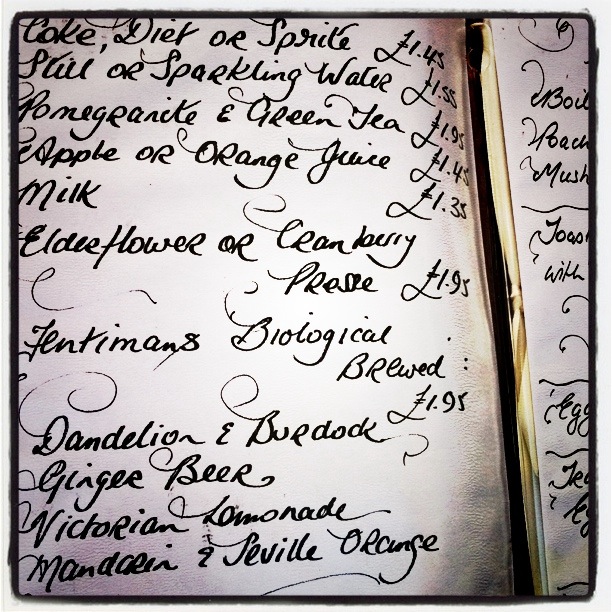 Coke, Diet or Sprite £1.45
Still or Sparkling Water £1.55
Pomegranite & Green Tea £1.95
Apple or Orange Juice £1.45
Milk £1.35
Elderflower or Cranberry
Presse £1.95
Fentimans Biological
Brewed :
£1.95
Dandelion & Burdock
Ginger Beer
Victorian Lemonade
Mandarin & Seville Orange
Boil
Poach
Mush
Toas
with
Egg